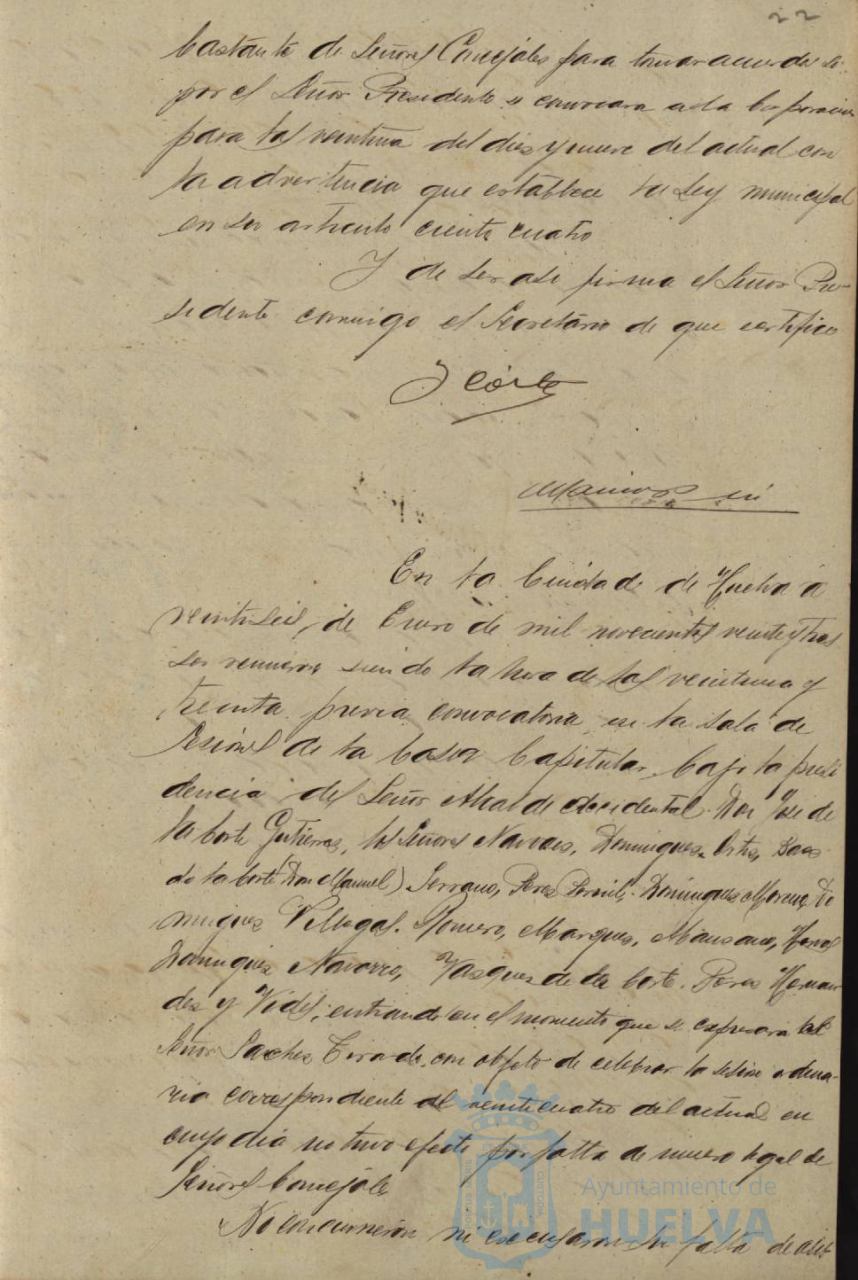 22
bastante de Señores Concejales para tomar acuerdos se
por el Señor Presidente se convocara a la Corporacion
para las veintiuna del dies y nueve del actual con
la advertencia que establece la Ley municipal
en su articulo ciento cuatro
Y de ser asi firma el Señor Pre-
sidente conmigo el Secretario de que certifico
En la Ciudad de Huelva á
veintiseis de Enero de mil novecientos veinte y tres
se reunieron siendo la hora de las veintiuna y
treinta previa convocatoria en la sala de
sesiones de la Casa Capitular, bajo la presi
dencia del Señor Alcalde accidental Don José de
la Corte Gutierres, los Señores Narvaes, Dominguez Ortis,
de la Corte (Don Manuel) Serrano, Peres Dominguez Moreno, Do
minguez Villegas, Romero, Marques, Mansano,
Dominguez Navarro, Vasques de la Corte, Peres Hernan
des y Vides, entrando en el momento que se expresará el
Señor Sanches Tirado, con objeto de celebrar la sesion ordina-
ria correspondiente al veinticuatro del actual en
cuyo dia no tuvo efecto por falta de numero legal de
Señores Concejales
No concurrieron ni excusaron su falta de asis
Ayuntamiento de
HUELVA